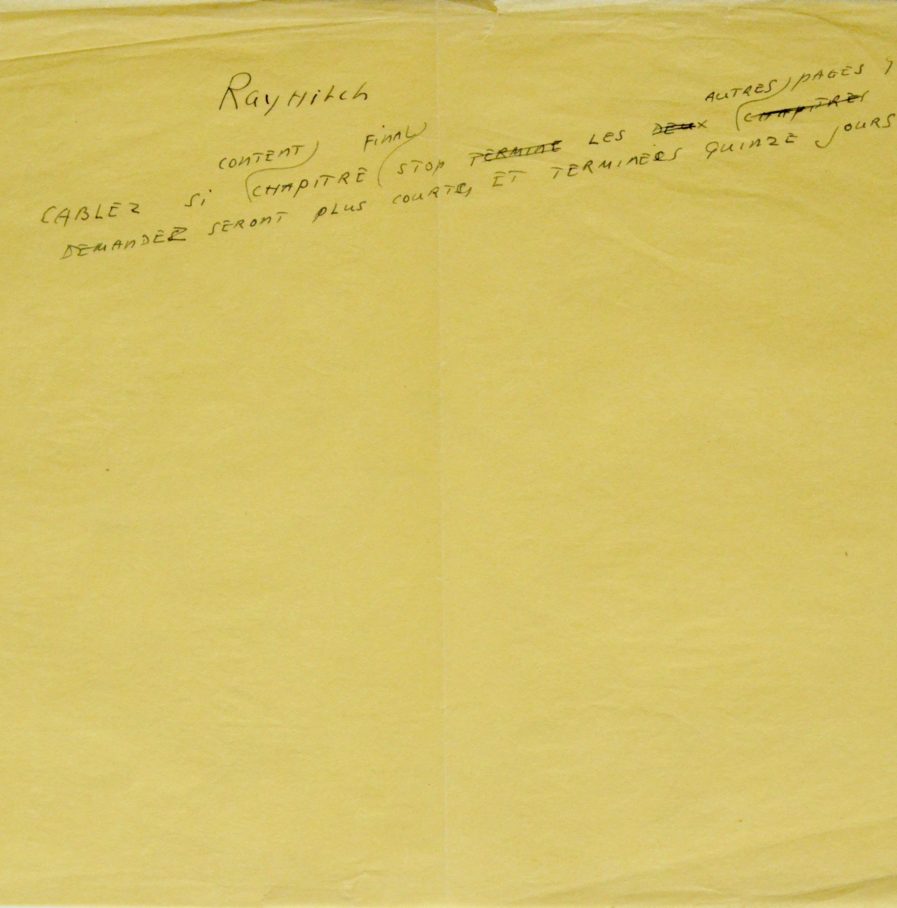 Rayhitch
CONTENT FINAL AUTRES PAGES
CABLEZ Si CHAPITRE STOP TERMINE LES DEUX CHAPITRES
DEMANDEZ SERONT PLUS COURTS, ET TERMINEES QUINZE JOURS